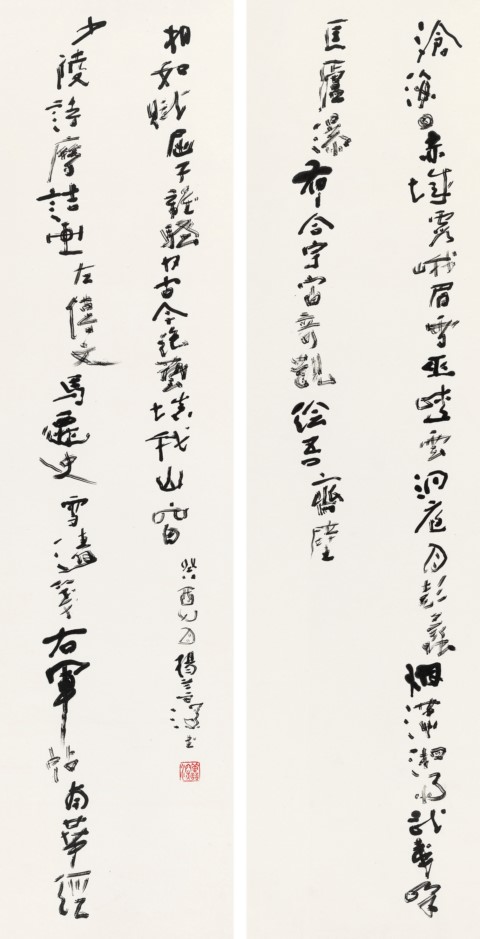 滄海日赤城霞峨眉雪巫峽雲洞庭月彭蠡烟瀟湘雨武彝峰
匡廬瀑布合宇宙奇觀繪吾齋壁
少陵詩摩詰畫左傳文馬遷史薛濤箋右軍帖南華經
相如賦屈子離騷收古今絕藝置我山窗
癸酉八月楊善深書